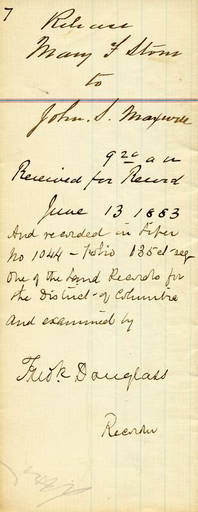 7
Release
Mary F Storm
to
John. S. Maxwell
9 20 a m
Received for Record
June 13 1883
And recorded in Liber
No 1044 - folio 135 et seq
one of the Land Records for
the District of Columbia
and examined by
Fredk Douglass
Recorder